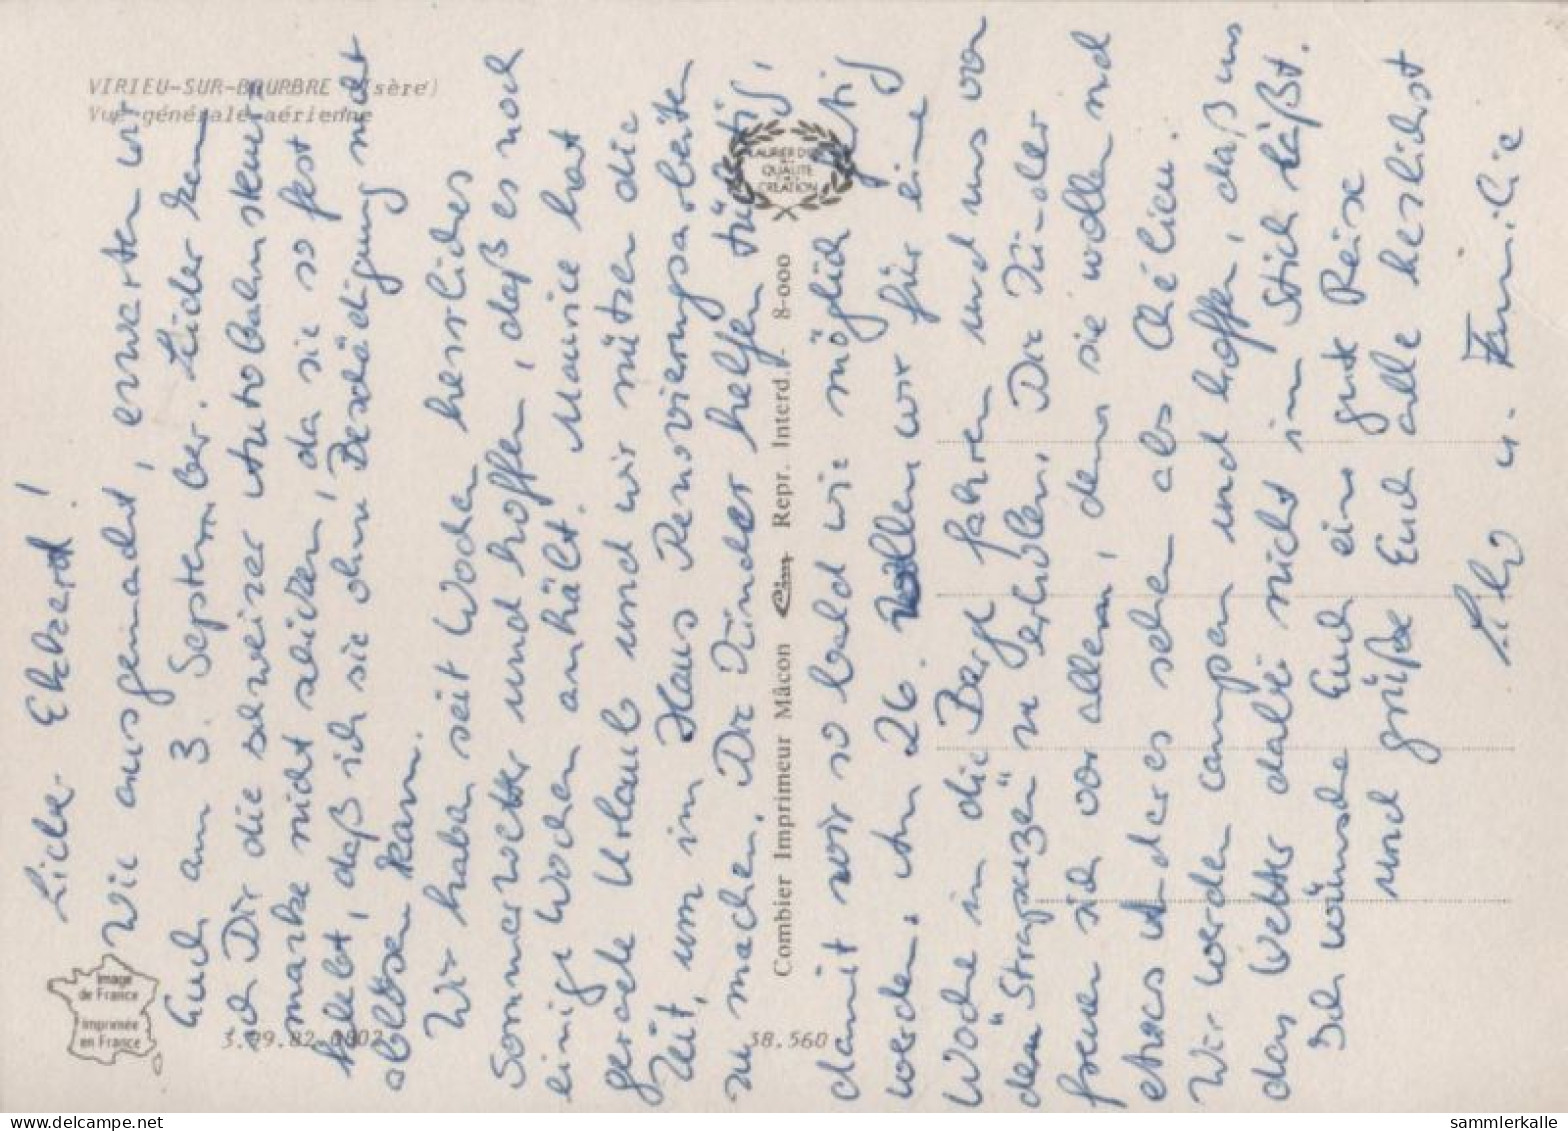 VIRIEU-SUR-BOURBRE (Isère)
Vue générale aérienne
Image
de France
Imprimée
en France
38.560
LAURIER D'OR
QUALITÉ
CRÉATION
Combier Imprimeur Mâcon Cim Repr. Interd. - 8-000
Liebe Ekkzard!
Wie ausgemacht, erwarten wir
Euch am 3. September. Leider kann
ich Dir die schweizer Autobahnsteuer-
marke nicht schicken, da sie so fest
klebt, daß ich sie ohne Beschädigung nicht
ablösen kann.
Wir haben seit Wochen herrliches
Sommerwetter und hoffen, daß es noch
einige Wochen anhält. Maurice hat
gerade Urlaub und wir nützen die
Zeit, um im Haus Renovierungsarbeiten
zu machen. Die Kinder helfen tüchtig,
damit wir so bald wie möglich fertig
werden. Am 26. wollen wir für eine
Woche in die Berge fahren und uns von
den "Strapazen" zu erholen. Die Kinder
freuen sich vor allem, denn sie wollen mal
etwas anderes sehen als Chélieu.
Wir werden campen und hoffen, daß uns
das Wetter dabei nicht im Stich läßt.
Ich wünsche Euch eine gute Reise
und grüße Euch alle herzlichst
u. Familie
sammlerkalle